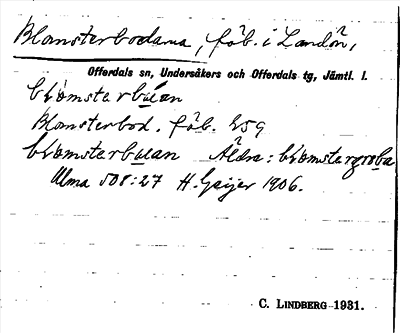 Blomsterbodarna, fäb. i Landön,
Offerdals sn, Undersåkers och Offerdals tg, Jämtl. l.
blomsterbuan
Blomsterbod. fäb. 259
blomsterbuan Äldre: blomstergroba
Ulma 508:27 H. Geijer 1906.
C. LINDBERG 1931.